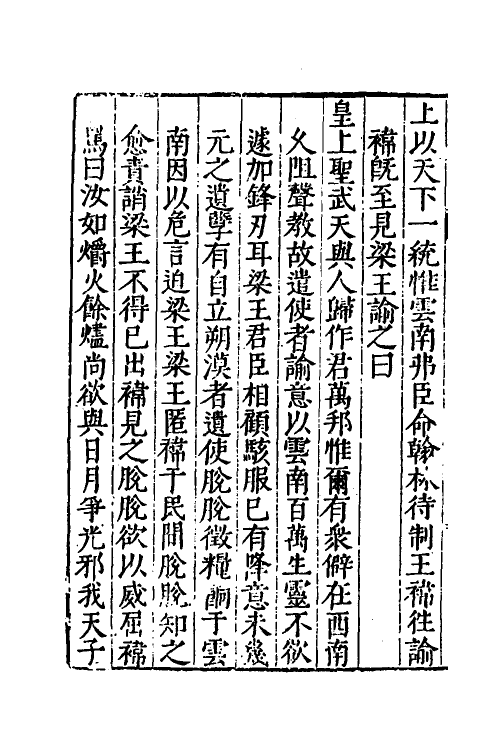 上以天下一統惟雲南弗臣命翰林待制王禕往諭
禕旣至見梁王諭之曰
皇上聖武天與人歸作君萬邦惟爾有衆僻在西南
久阻聲教故遣使者諭意以雲南百萬生靈不欲
遽加鋒刃耳梁王君臣相顧駭服已有降意未幾
元之遺孽有自立朔漠者遺使脫脫徵糧餉于雲
南因以危言迫梁王梁王匿禕于民間脫脫知之
愈責誚梁王不得已出禕見之脫脫欲以威屈禕
罵曰汝如爝火餘燼尚欲與日月爭光邪我天子